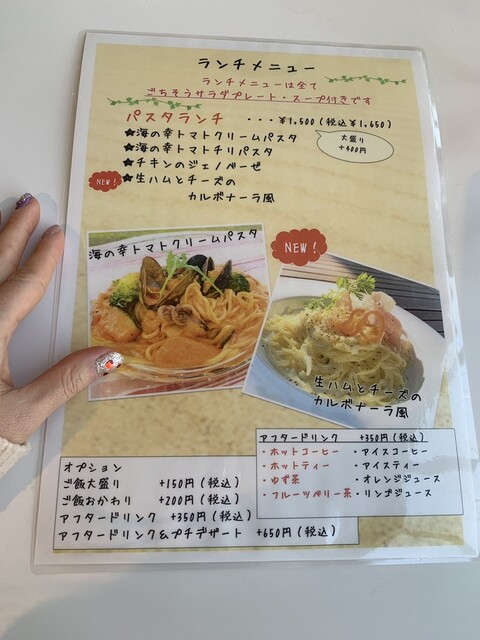 ランチメニュー
ランチメニューは全て
ごちそうサラダプレート・スープ付きです
パスタランチ ・・・¥1,500(税込¥1,650)
★海の幸トマトクリームパスタ
大盛り
+400円
★海の幸トマトチリパスタ
★チキンのジェノベーゼ
NEW! ★生ハムとチーズの
カルボナーラ風
海の幸トマトクリームパスタ
NEW!
生ハムとチーズの
カルボナーラ風
アフタードリンク +350円(税込)
・ホットコーヒー ・アイスコーヒー
・ホットティー ・アイスティー
・ゆず茶 ・オレンジジュース
・フルーツベリー茶 ・リンゴジュース
オプション
ご飯大盛り +150円(税込)
ご飯おかわり +200円(税込)
アフタードリンク +350円(税込)
アフタードリンク&プチデザート +650円(税込)